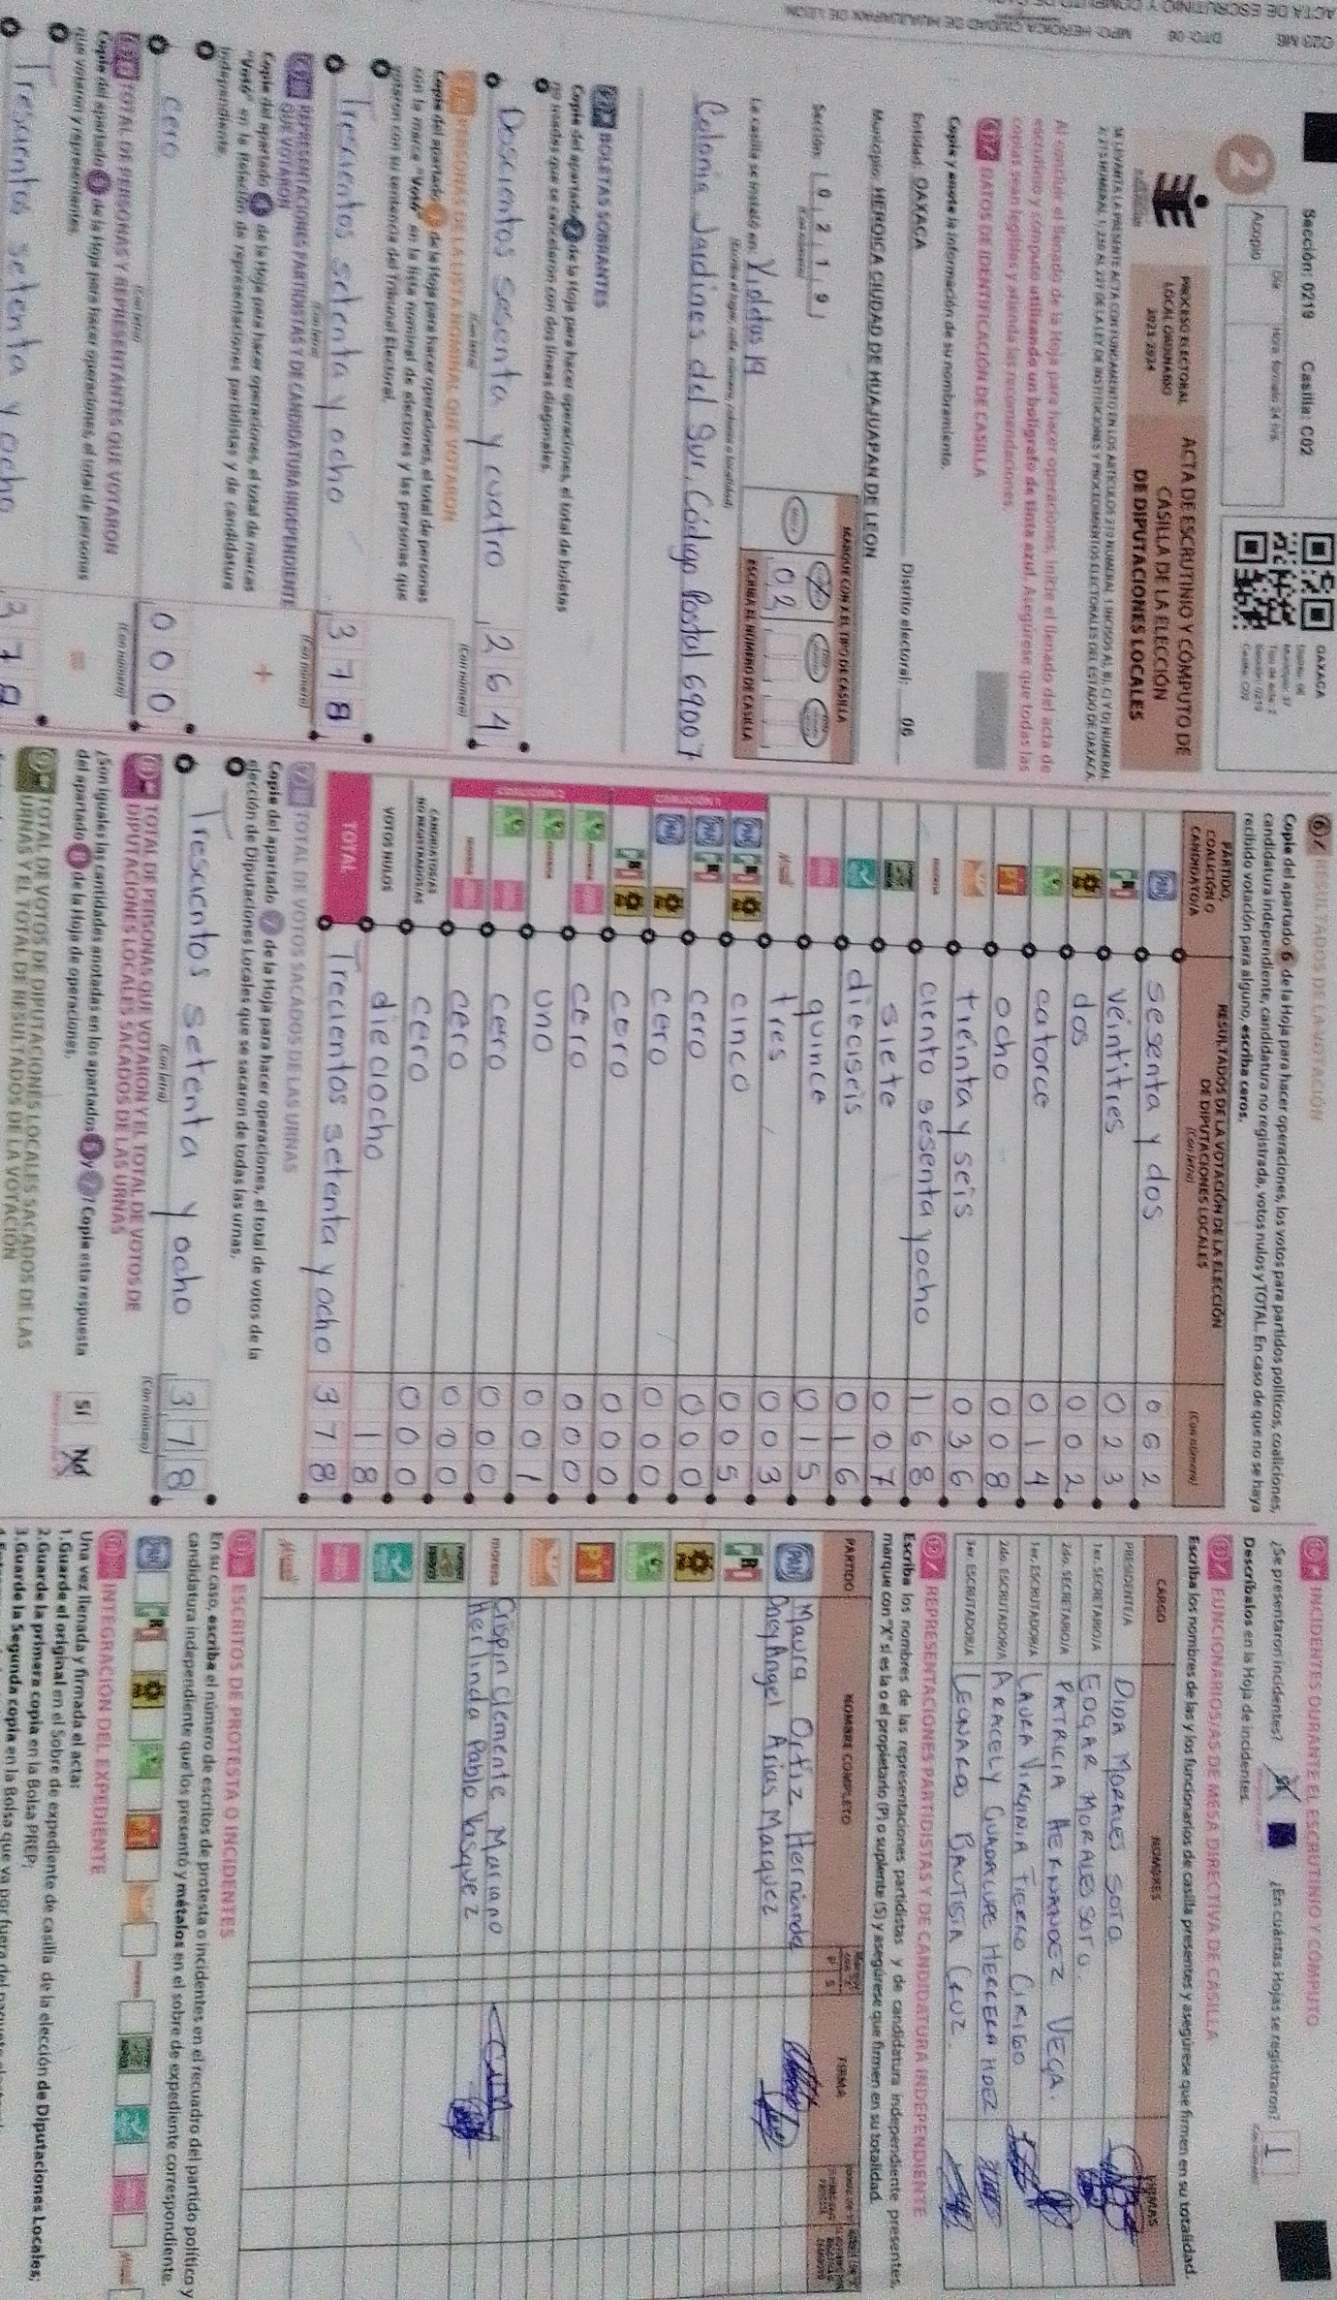 ACTA DE ESCRUTINIO Y CÓMPUTO DE
MPO: HEROICA CIUDAD DE HUAJUAPAN DE LEON
Sección: 0219 Casilla: C02
OAXACA
2
Acopio
PROCESO ELECTORAL
LOCAL ORDINARIO
2023-2024
ACTA DE ESCRUTINIO Y CÓMPUTO DE
CASILLA DE LA ELECCIÓN
DE DIPUTACIONES LOCALES
Al concluir el llenado de la Hoja para hacer operaciones, inicie el llenado del acta de
escrutinio y cómputo utilizando un bolígrafo de tinta azul. Asegúrese que todas las
copias sean legibles y atienda las recomendaciones.
DATOS DE IDENTIFICACIÓN DE CASILLA
Copie y anote la información de su nombramiento.
Entidad: OAXACA Distrito electoral: 06
Municipio: HEROICA CIUDAD DE HUAJUAPAN DE LEON
Sección: 0 2 1 9
MARQUE CON X EL TIPO DE CASILLA
ESCRIBA EL NÚMERO DE CASILLA
0 2
La casilla se instaló en: Violetas 19
Colonia Jardines del Sur, Código Postal 69007
BOLETAS SOBRANTES
Copie del apartado 2 de la Hoja para hacer operaciones, el total de boletas
no usadas que se cancelaron con dos líneas diagonales.
Doscientos sesenta y cuatro 264
(Con letra) (Con número)
PERSONAS DE LA LISTA NOMINAL QUE VOTARON
Copie del apartado 3 de la Hoja para hacer operaciones, el total de personas
con la marca "Votó" en la lista nominal de electores y las personas que
votaron con su sentencia del Tribunal Electoral.
Trecientos setenta y ocho 378
(Con letra) (Con número)
REPRESENTACIONES PARTIDISTAS Y DE CANDIDATURA INDEPENDIENTE
QUE VOTARON
Copie del apartado 4 de la Hoja para hacer operaciones, el total de marcas
"Votó" en la Relación de representaciones partidistas y de candidatura
independiente.
+
cero 000
(Con letra) (Con número)
TOTAL DE PERSONAS Y REPRESENTANTES QUE VOTARON
Copie del apartado 5 de la Hoja para hacer operaciones, el total de personas
que votaron y representantes.
=
Trescientos setenta y ocho 378
6 RESULTADOS DE LA VOTACIÓN
Copie del apartado 6 de la Hoja para hacer operaciones, los votos para partidos políticos, coaliciones,
candidatura independiente, candidatura no registrada, votos nulos y TOTAL. En caso de que no se haya
recibido votación para alguno, escriba ceros.
PARTIDO,
COALICIÓN O
CANDIDATO/A
RESULTADOS DE LA VOTACIÓN DE LA ELECCIÓN
DE DIPUTACIONES LOCALES
(Con letra)
(Con número)
PAN sesenta y dos 062
PRI veintitres 023
PRD dos 002
catorce 014
PT ocho 008
treinta y seis 036
morena ciento sesenta y ocho 168
siete 007
dieciseis 016
quince 015
tres 003
PAN PRI PRD cinco 005
PAN PRI cero 000
PAN PRD cero 000
PRI PRD cero 000
cero 000
uno 001
cero 000
cero 000
CANDIDATOS/AS
NO REGISTRADOS/AS cero 000
VOTOS NULOS dieciocho 18
TOTAL Trecientos setenta y ocho 378
TOTAL DE VOTOS SACADOS DE LAS URNAS
Copie del apartado 7 de la Hoja para hacer operaciones, el total de votos de la
elección de Diputaciones Locales que se sacaron de todas las urnas.
Trescientos setenta y ocho 378
(Con letra) (Con número)
TOTAL DE PERSONAS QUE VOTARON Y EL TOTAL DE VOTOS DE
DIPUTACIONES LOCALES SACADOS DE LAS URNAS
¿Son iguales las cantidades anotadas en los apartados 5 y 7? Copie esta respuesta
del apartado 8 de la Hoja de operaciones.
SÍ No
TOTAL DE VOTOS DE DIPUTACIONES LOCALES SACADOS DE LAS
URNAS Y EL TOTAL DE RESULTADOS DE LA VOTACIÓN
INCIDENTES DURANTE EL ESCRUTINIO Y CÓMPUTO
¿Se presentaron incidentes? ¿En cuántas Hojas se registraron? 1
Descríbalos en la Hoja de incidentes.
FUNCIONARIOS/AS DE MESA DIRECTIVA DE CASILLA
Escriba los nombres de las y los funcionarios de casilla presentes y asegúrese que firmen en su totalidad.
CARGO NOMBRES FIRMAS
PRESIDENTE/A DIDA MORALES SOTO
1er. SECRETARIO/A EDGAR MORALES SOTO.
2do. SECRETARIO/A PATRICIA HERNANDEZ VEGA.
1er. ESCRUTADOR/A LAURA VIRGINIA FIERRO CIRIGO
2do. ESCRUTADOR/A ARACELY GUADALUPE HERRERA HDEZ
3er. ESCRUTADOR/A LEONARDO BAUTISTA CRUZ.
REPRESENTACIONES PARTIDISTAS Y DE CANDIDATURA INDEPENDIENTE
Escriba los nombres de las representaciones partidistas y de candidatura independiente presentes,
marque con "X" si es la o el propietario (P) o suplente (S) y asegúrese que firmen en su totalidad.
PARTIDO NOMBRE COMPLETO P S FIRMA
PAN Maura Ortiz Hernandez
Dacy Angel Arias Marquez
PRI
PRD
PT
morena Crispin Clemente Mariano
Herlinda Pablo Vasquez
ESCRITOS DE PROTESTA O INCIDENTES
En su caso, escriba el número de escritos de protesta o incidentes en el recuadro del partido político y
candidatura independiente que los presentó y métalos en el sobre de expediente correspondiente.
INTEGRACIÓN DEL EXPEDIENTE
Una vez llenada y firmada el acta:
1.Guarde el original en el Sobre de expediente de casilla de la elección de Diputaciones Locales;
2.Guarde la primera copia en la Bolsa PREP;
3.Guarde la Segunda copia en la Bolsa que va por fuera del paquete